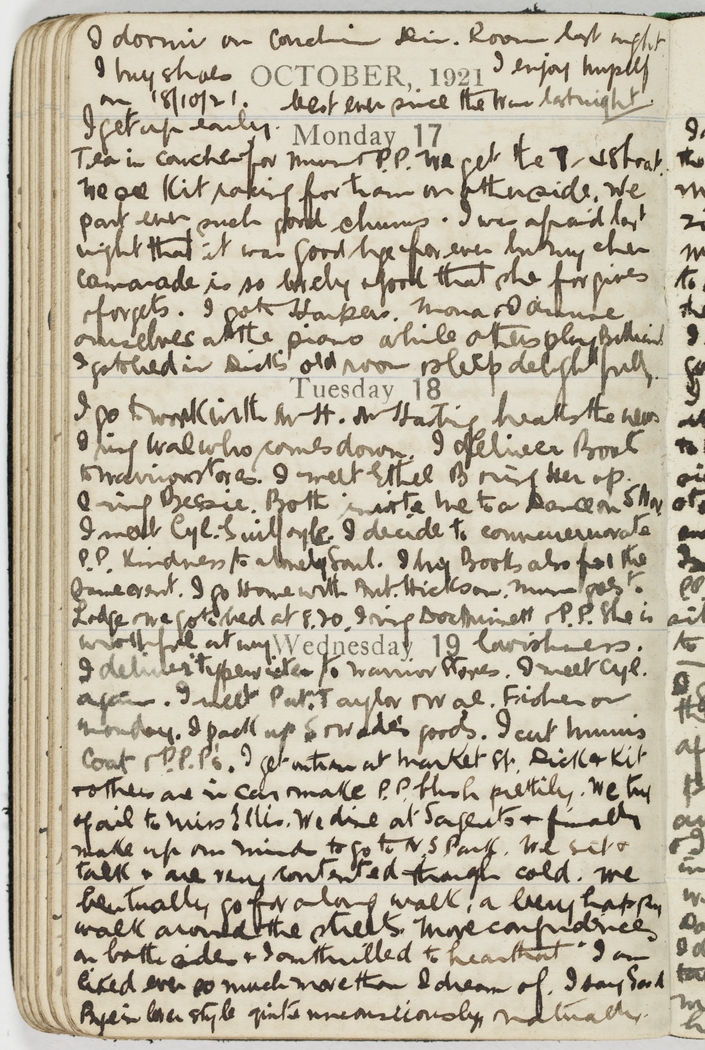 I dormir on couch in Din. Room last night
I buy shoes OCTOBER, 1921 I enjoy myself
on 18/10/21. best ever since the War last night.
I get up early.
Monday 17
Tea in couche for Mum & P.P. We get the 7- & 8 boat.
We see Kit racing for tram on other side. We
part ever such good chums. I was afraid last
night that it was good bye for ever but my cher
camarade is so lovely & good that she forgives
& forgets. I go to Harpers. Mona & I amuse
ourselves at the piano while others play Billiards.
I go to bed in Dick's old room & sleep delightfully.
Tuesday 18
I go to work with Mr H. Mr Hasting breaks the news
I ring Wal who comes down. I deliver Boat
to Warrior stores. I meet Ethel B & ring Her up.
I ring Bessie. Both invite me to a Dance on 5 Nov.
I meet Cyl. Guilfoyle. I decide to commemorate
P.P. Kindness to a lonely Soul. I buy Books also for the
same event. I go Home with Aut. Hickson. Mum goes to
Lodge & we go to bed at 8.30. I ring Doc & P.P. She is
wrothful at my lavishness.
Wednesday 19
I deliver typewriter to Warrior Stores. I meet Cyl.
again. I meet Pat. Taylor & Wal. Fisher on
Monday. I pack up goods. I cart Mum's
Coat & P.P.P's. I get on tram at Market St. Dick & Kit
& others are in car & make P.P. blush prettily. We try
& fail to Miss Ellis. We dine at Sargents & finally
make up our mind to go to N.S Park. We sit &
talk & are very contented though cold. We
eventually go for a long walk; a very happy
walk around the streets. More confidences
on both sides & I am thrilled to hear that I am
liked ever so much more than I dream of. I say Good
Bye in lover style quite unconsciously & naturally.